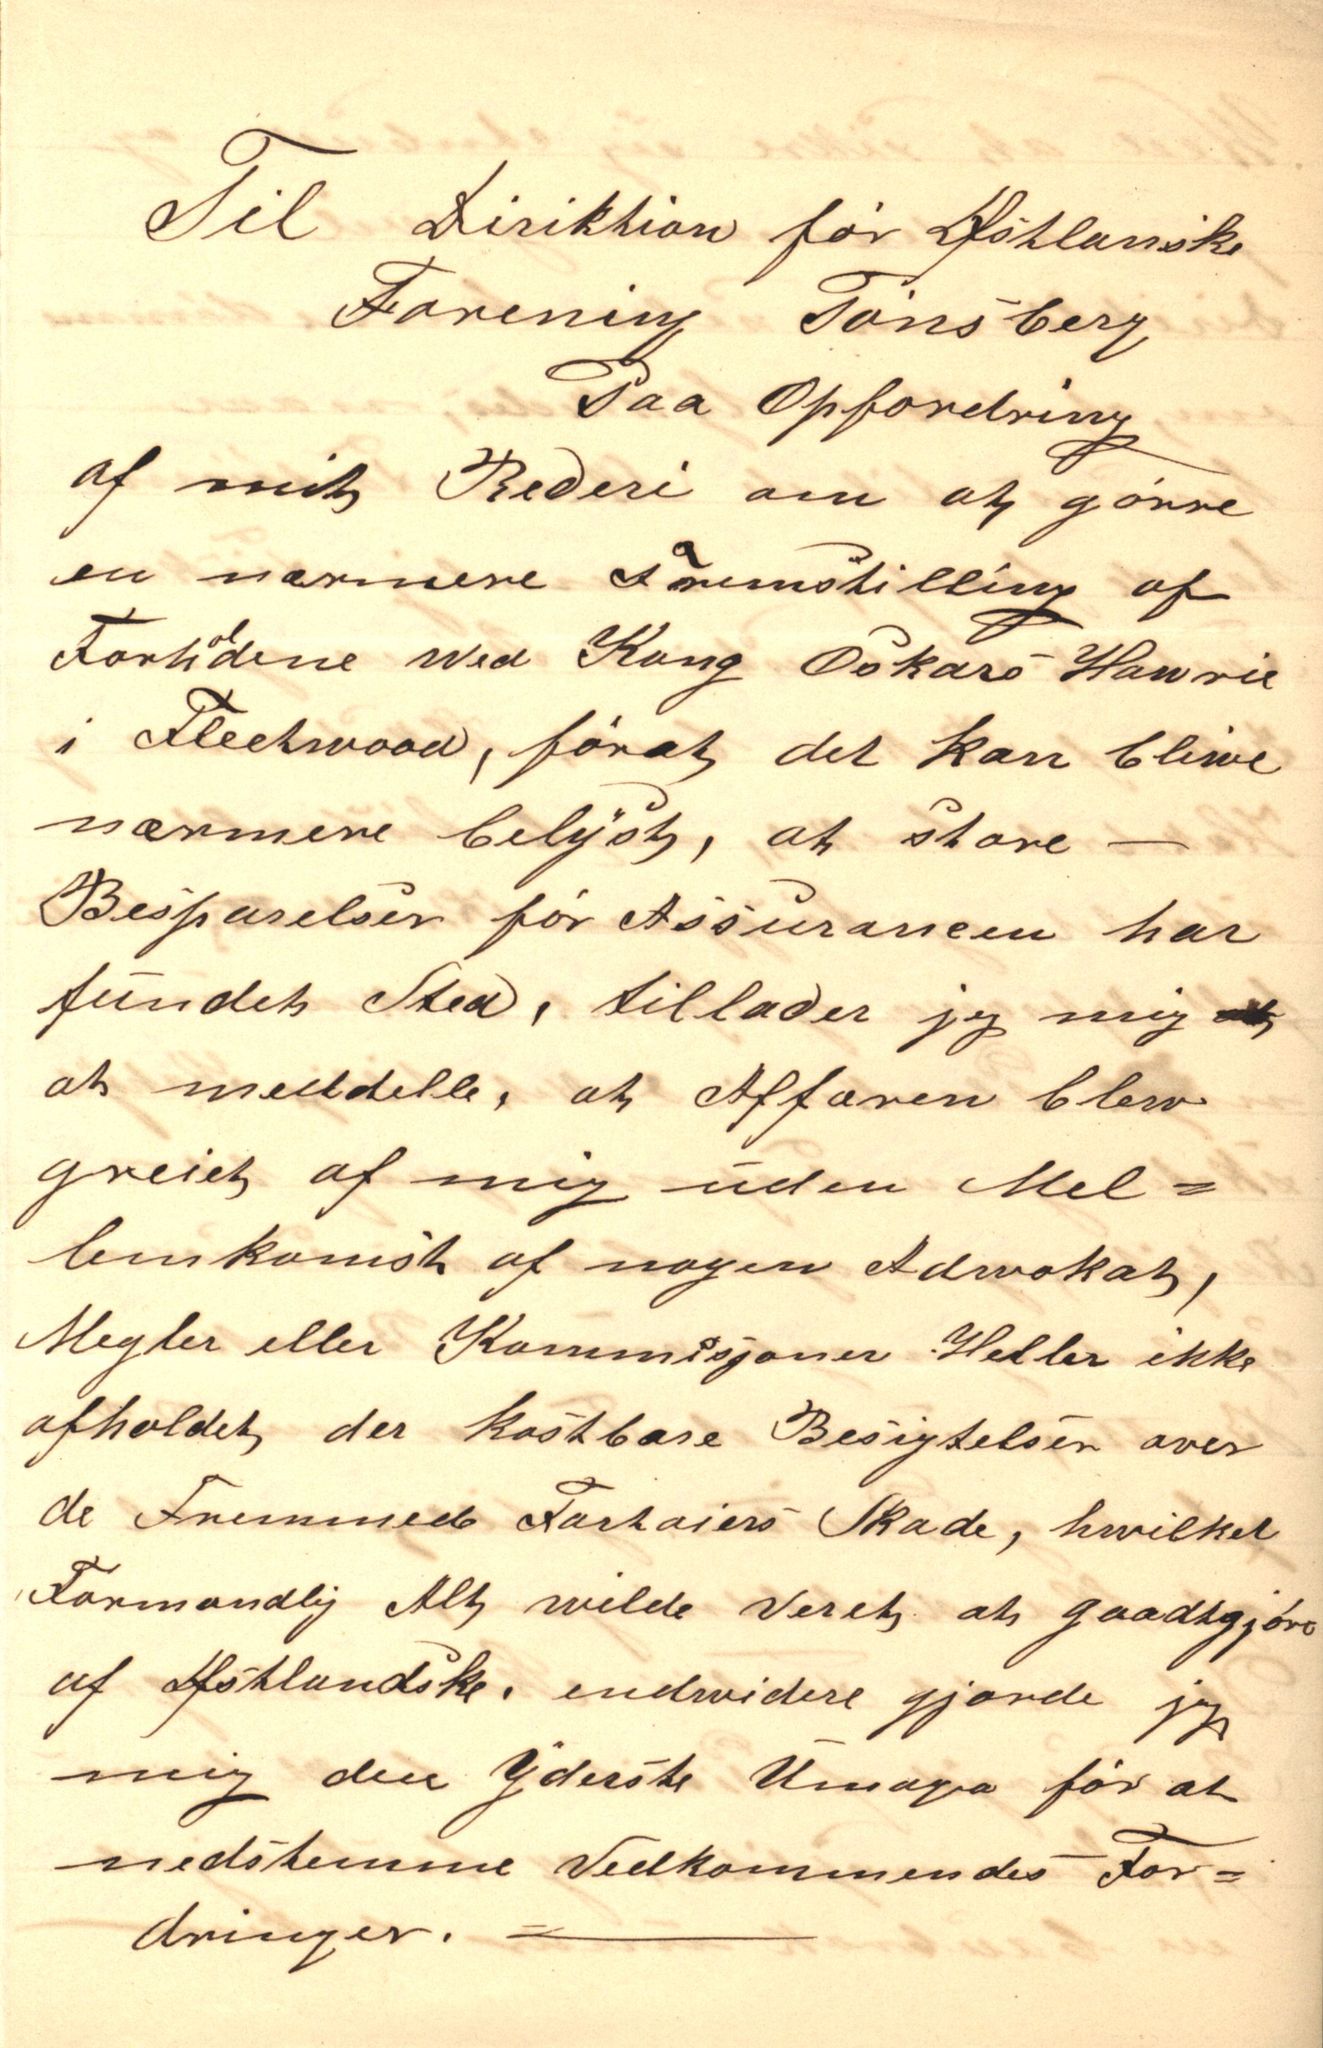 Til Diriktion før Østlanske
Forening Tønsberg
Paa Opfordring
af mit Rederi om at gørre
en nærmere Fremstilling af
Forholdene wed Kong Oskars Hawrie
i Fleetwood, førat det kan bliwe
nærmere belyst, at store —
Besparelser før Assurancen har
fundet Sted, tillader jeg mig
at meddelle, at Affæren blew
greiet af mig uden Mel=
lemkomst af nogen Adwokat,
Megler eller Kommisjoner Heller ikke
afholdet der kostbare Besigtelser over
de Fremmede Fartøiers Skade, hwilket
Formandlig Alt wilde veret at gaadtgjøre
af Østlandske. endwidere gjorde jeg
mig den Yderste Umage før at
nedstemme Vedkommendes For=
dringer. —